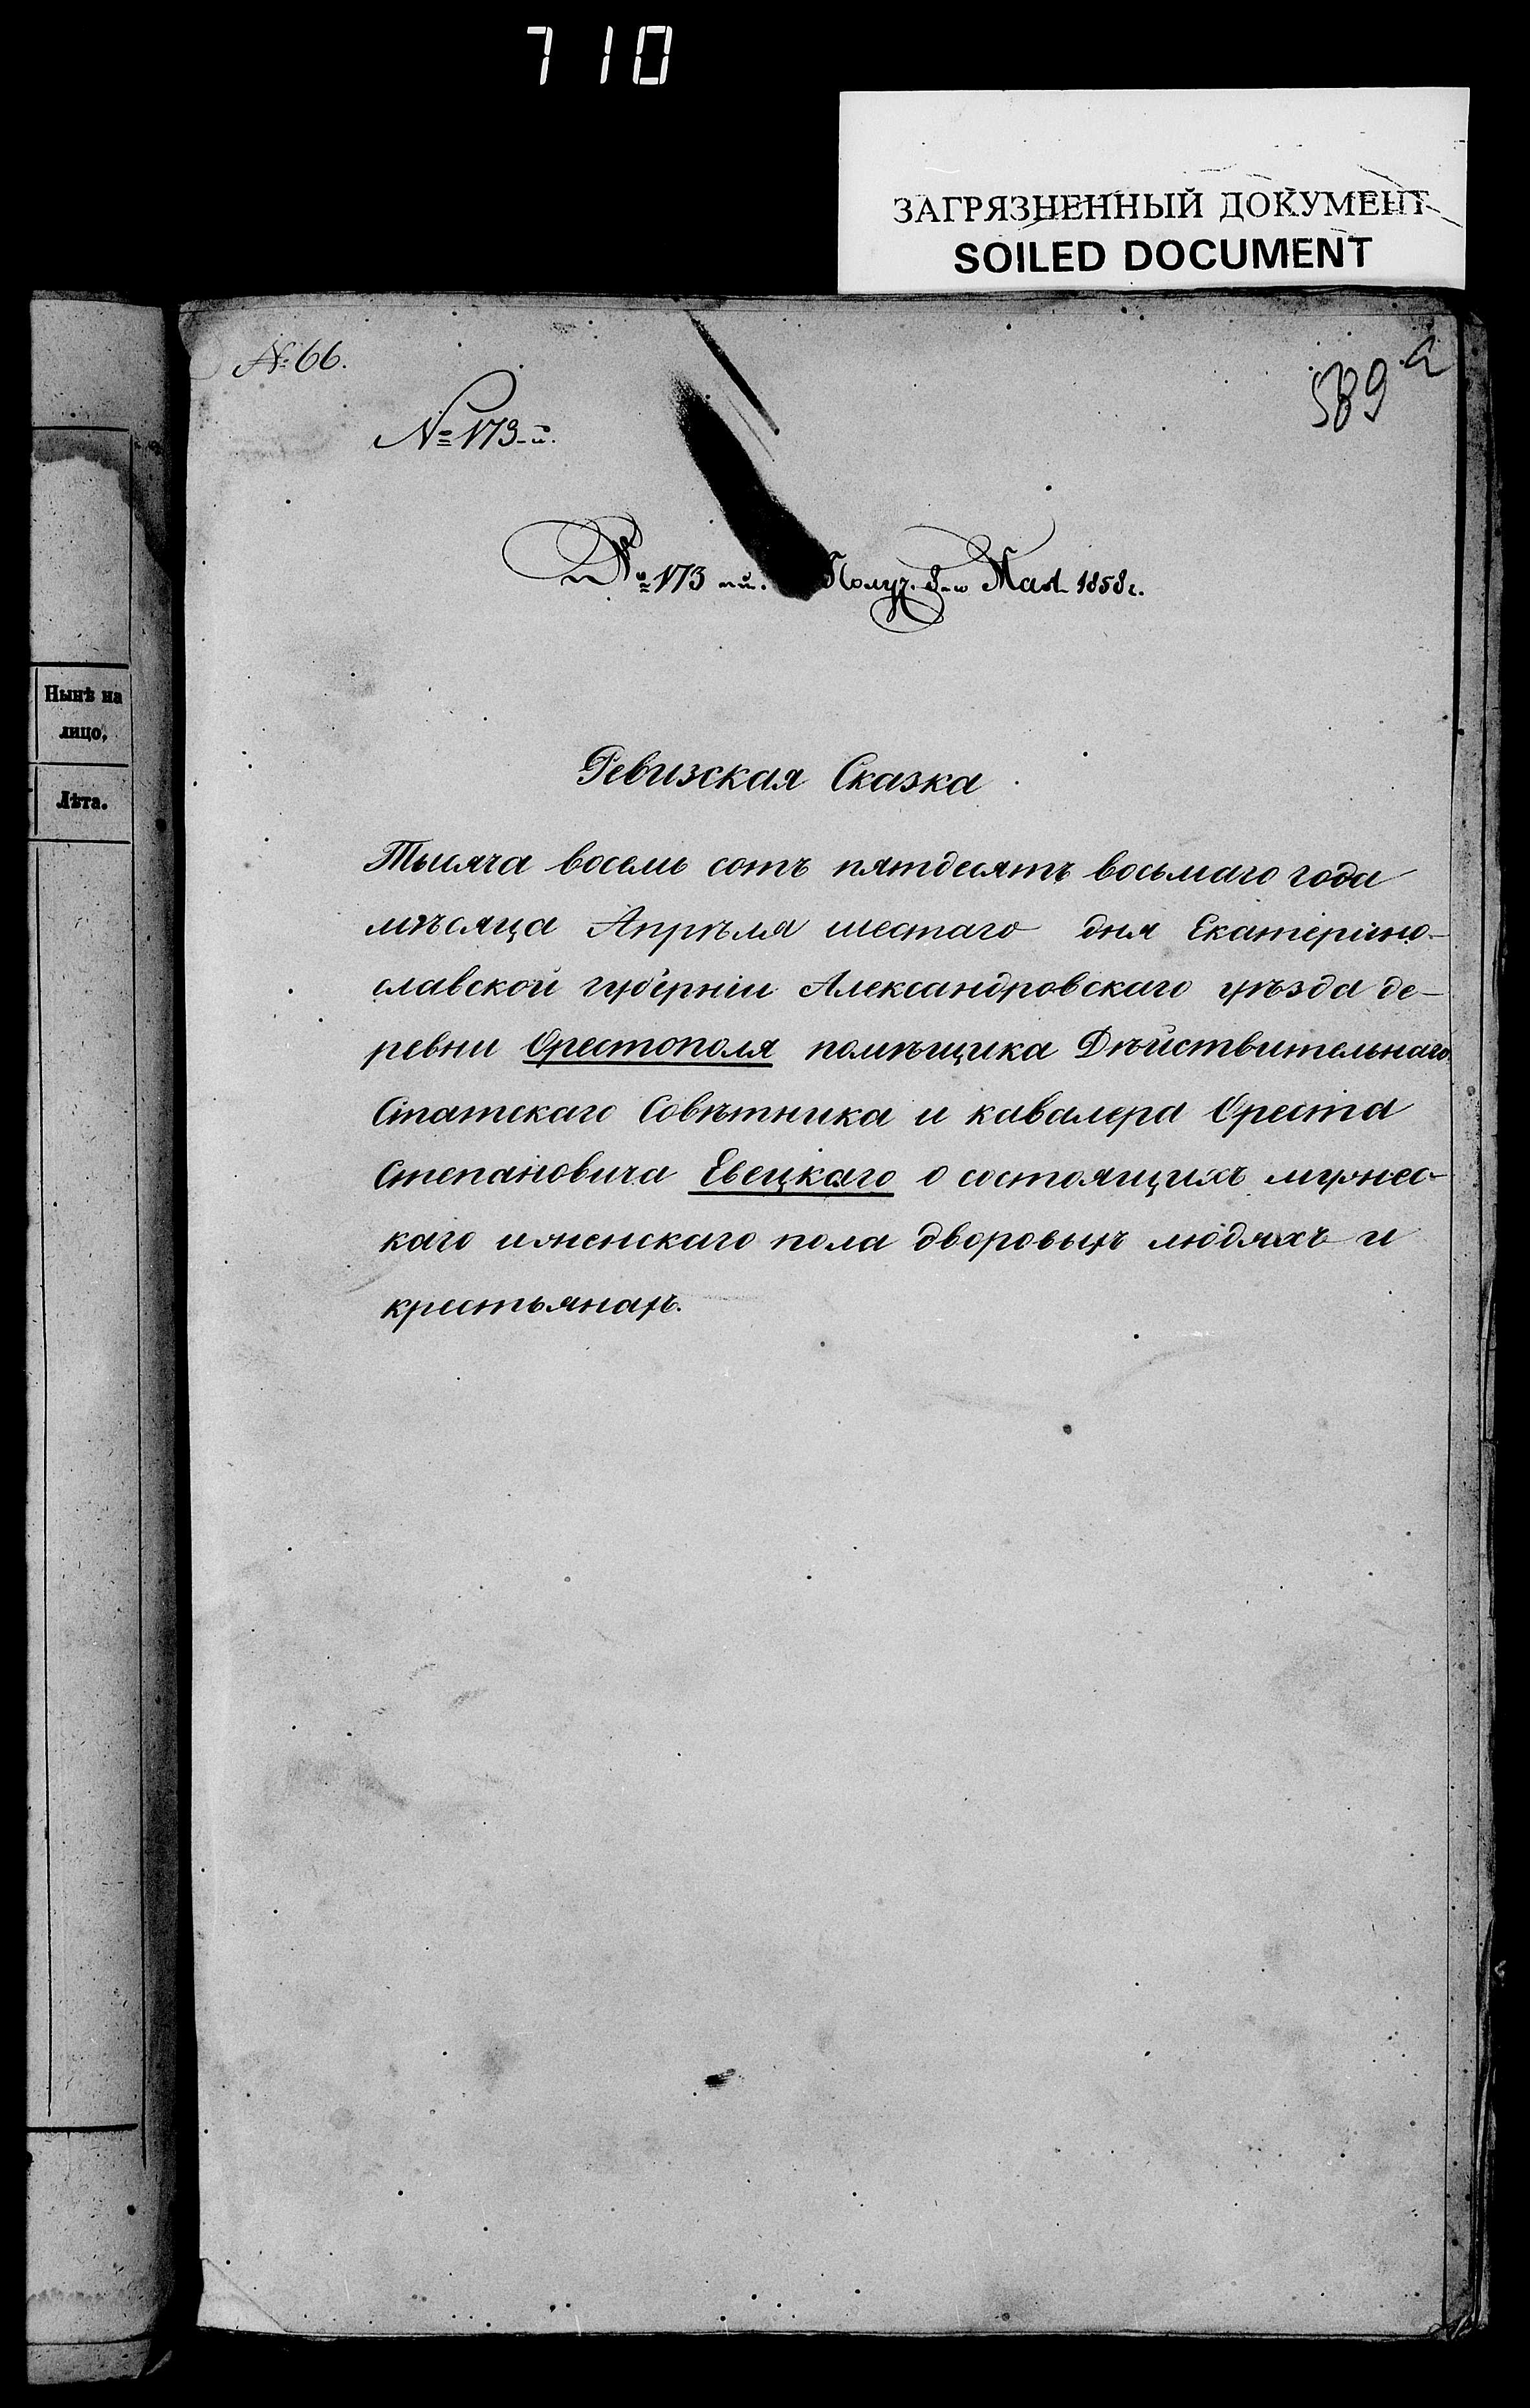 710
ЗАГРЯЗНЕННЫЙ ДОКУМЕНТ
SOILED DOCUMENT
№ 66.
589 а
№ 173-й.
№ 173-й. Получ. 8-го Мая 1858 г.
Нынѣ на
лицо.
Лѣта.
Ревизская Сказка
Тысяча восемь сотъ пятдесятъ восьмаго года
мѣсяца Апрѣля шестаго дня Екатерино-
славской губерніи Александровскаго уѣзда де-
ревни Орестополя помѣщика Дѣйствительнаго
Статскаго Совѣтника и кавалера Ореста
Степановича Евецкаго о состоящихъ мужес-
каго и женскаго пола дворовыхъ людяхъ и
крестьянахъ.